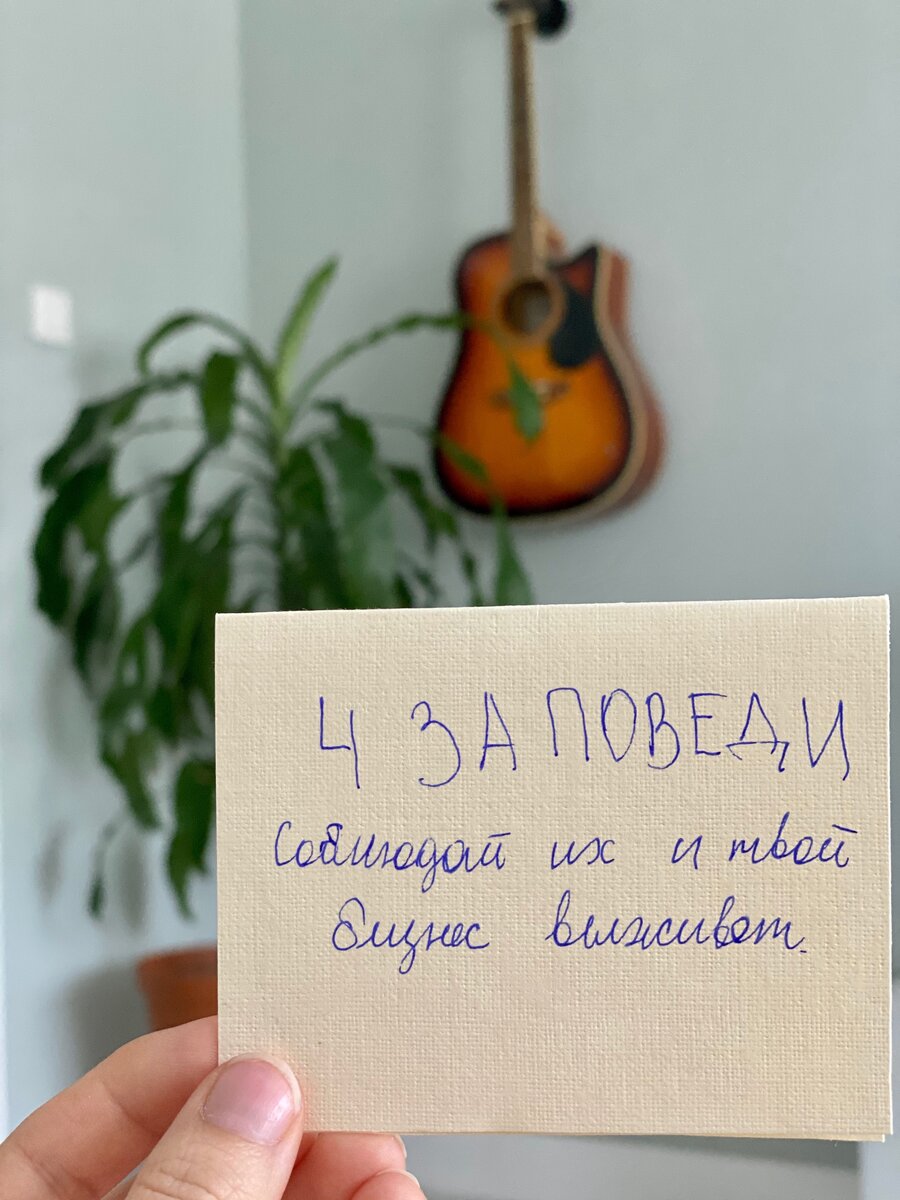 4 ЗАПОВЕДИ
Соблюдай их и твой
бизнес выживет.